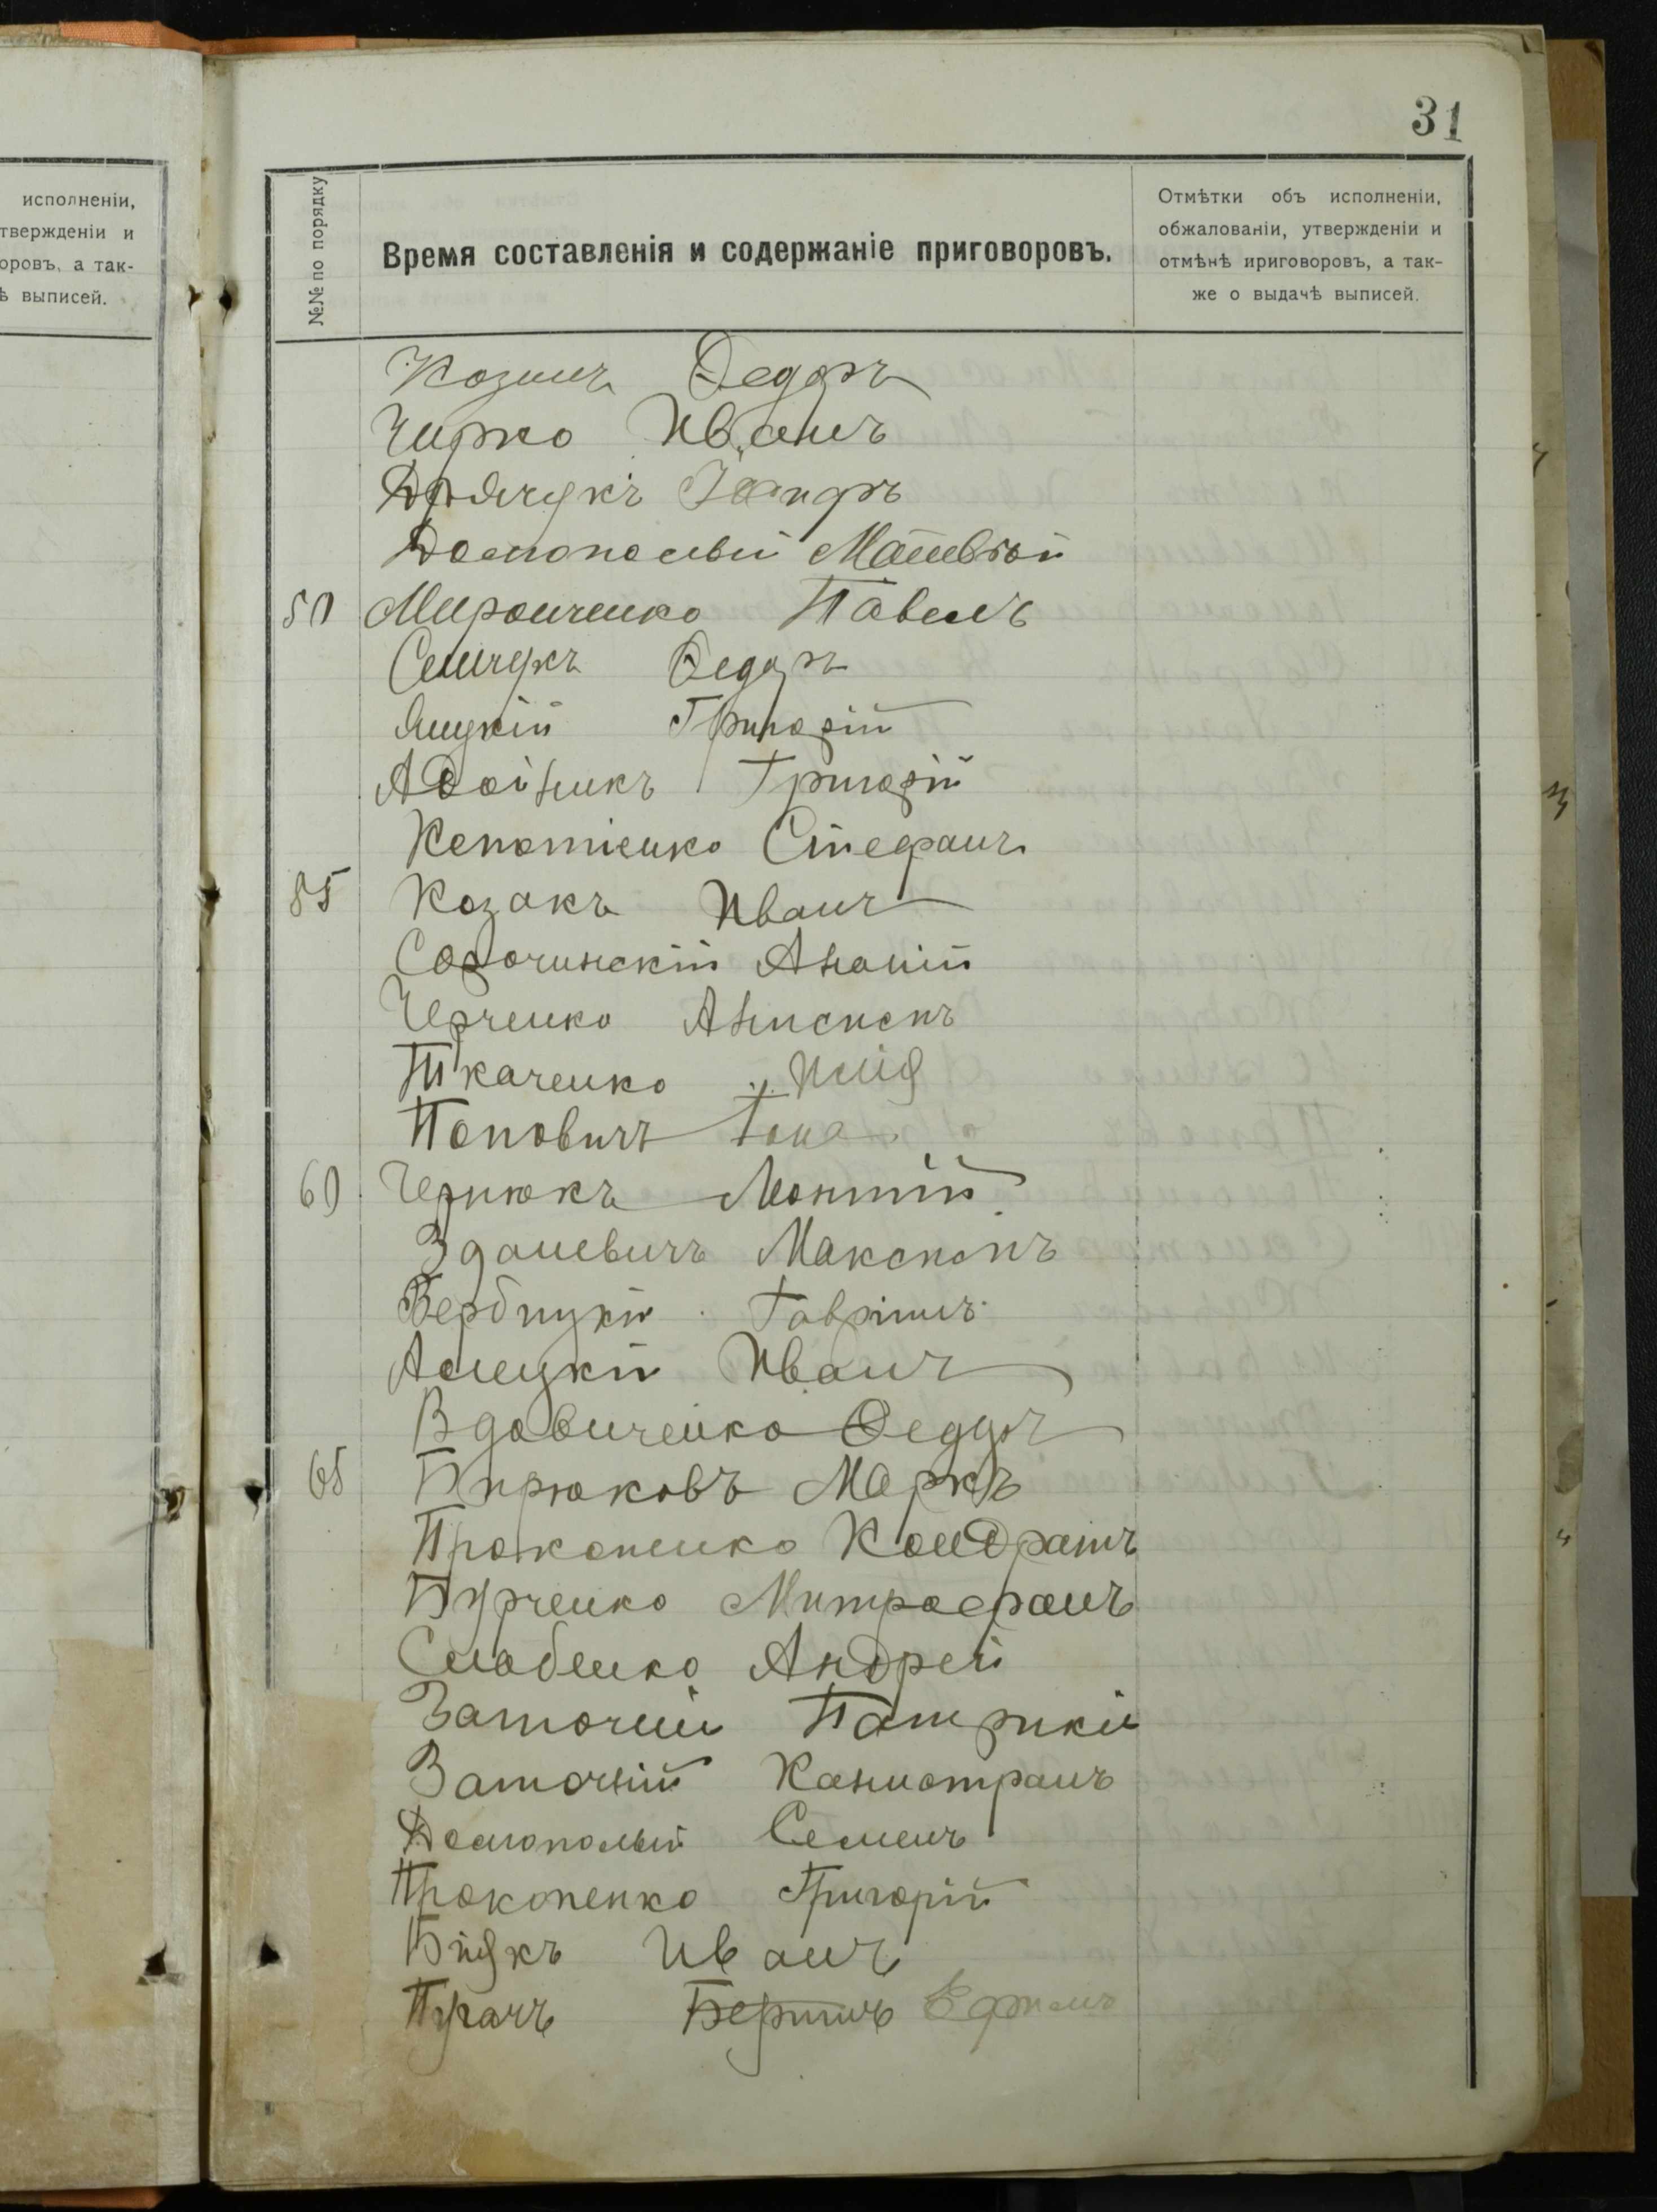 31
исполненіи,
твержденіи и
оровъ, а так-
ѣ выписей.
№№ по порядку
Время составленія и содержаніе приговоровъ.
Отмѣтки объ исполненіи,
обжалованіи, утвержденіи и
отмѣнѣ ириговоровъ, а так-
же о выдачѣ выписей.
Ѳедоръ
Чирко Иванъ
Долгополый Матвѣй
50 Миронченко Павелъ
Семчукъ Ѳедоръ
Яцукій Григорій
Григорій
Стефанъ
55 Козакъ Иванъ
Сорочинскій Ананій
Черченко
Ткаченко Илія
Поповичъ
60 Чернюкъ Леонтій
Здоневичъ Максимъ
Вербицкій Гавріилъ
Иванъ
Вдовиченко Ѳедоръ
65 Бирюковъ Маркъ
Прокопенко Кондратъ
Бурченко Митрофанъ
Слабенко Андрей
Заточній Патрикій
Заточній
Долгополый Семенъ
Прокопенко Григорій
Иванъ
Пугачъ Ефимъ